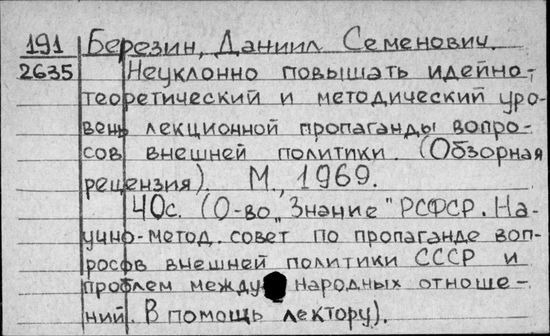 191 Березин, Даниил Семенович.
2635 Неуклонно повышать идейно-
теоретический и методический уро-
вень лекционной пропаганды вопро-
сов внешней политики. (Обзорная
рецензия). М., 1969.
40с. (О-во „Знание" РСФСР. На-
учно-метод. совет по пропаганде воп-
росов внешней политики СССР и
проблем международных отноше-
ний. В помощь лектору).